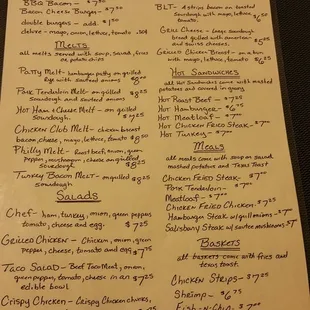 BBQ Bacon - $7
Bacon Cheese Burger - $7
double burgers - add
deluxe - mayo, onion, lettuce, tomato
Melts
all melts served with soup, salad, fries
or potato chips
Patty Melt - hamburger patty on grilled
Rye with sauteed onions $8
Pork Tenderloin Melt - on grilled
sourdough and sauteed onions $8 25
Hot Ham & Cheese Melt - on grilled
sourdough. $7 25
Chicken Club Melt - chicken breast
bacon, cheese, mayo, lettuce, tomato $8 50
Philly Melt - roast beef, onion, green
pepper, mushroom, cheese on grilled
sourdough $8 25
Turkey Bacon Melt - on grilled $8 25
sourdough
Salads
Chef - ham, turkey, onion, green peppers
tomato, cheese and egg. $7 25
Grilled Chicken - Chicken, onion, green
pepper, cheese, tomato and egg $7
Taco Salad - Beef Taco Meat, onion,
green pepper, tomato, cheese in an $7 25
edible bowl
Crispy Chicken - Crispy Chicken chunks,
BLT - 4 strips bacon on toasted
sourdough with mayo, lettuce,
tomato. $6 50
Grill Cheese - large sandwich
bread grilled with american
and swiss cheeses.
Grilled Chicken Breast - on a bun
with mayo, lettuce, tomato $6 25
Hot Sandwiches
all Hot Sandwiches come with mashed
potatoes and covered in gravy
Hot Roast Beef - $7 25
Hot Hamburger - $6
Hot Meatloaf - $7 00
Hot Chicken Fried Steak - $7 00
Hot Turkey - $7 00
Meals
all meals come with soup or salad
mashed potatoes and Texas Toast
Chicken Fried Steak - $7
Pork Tenderloin - $7
Meatloaf - $7
Chicken Fried Chicken - $7 25
Hamburger Steak w/ grill onions - $7
Salisbury Steak w/ sautee mushrooms - $7
Baskets
all baskets come with fries and
texas toast.
Chicken Strips - $7 25
Shrimp - $6 75
Fish-N-Chip $7 00